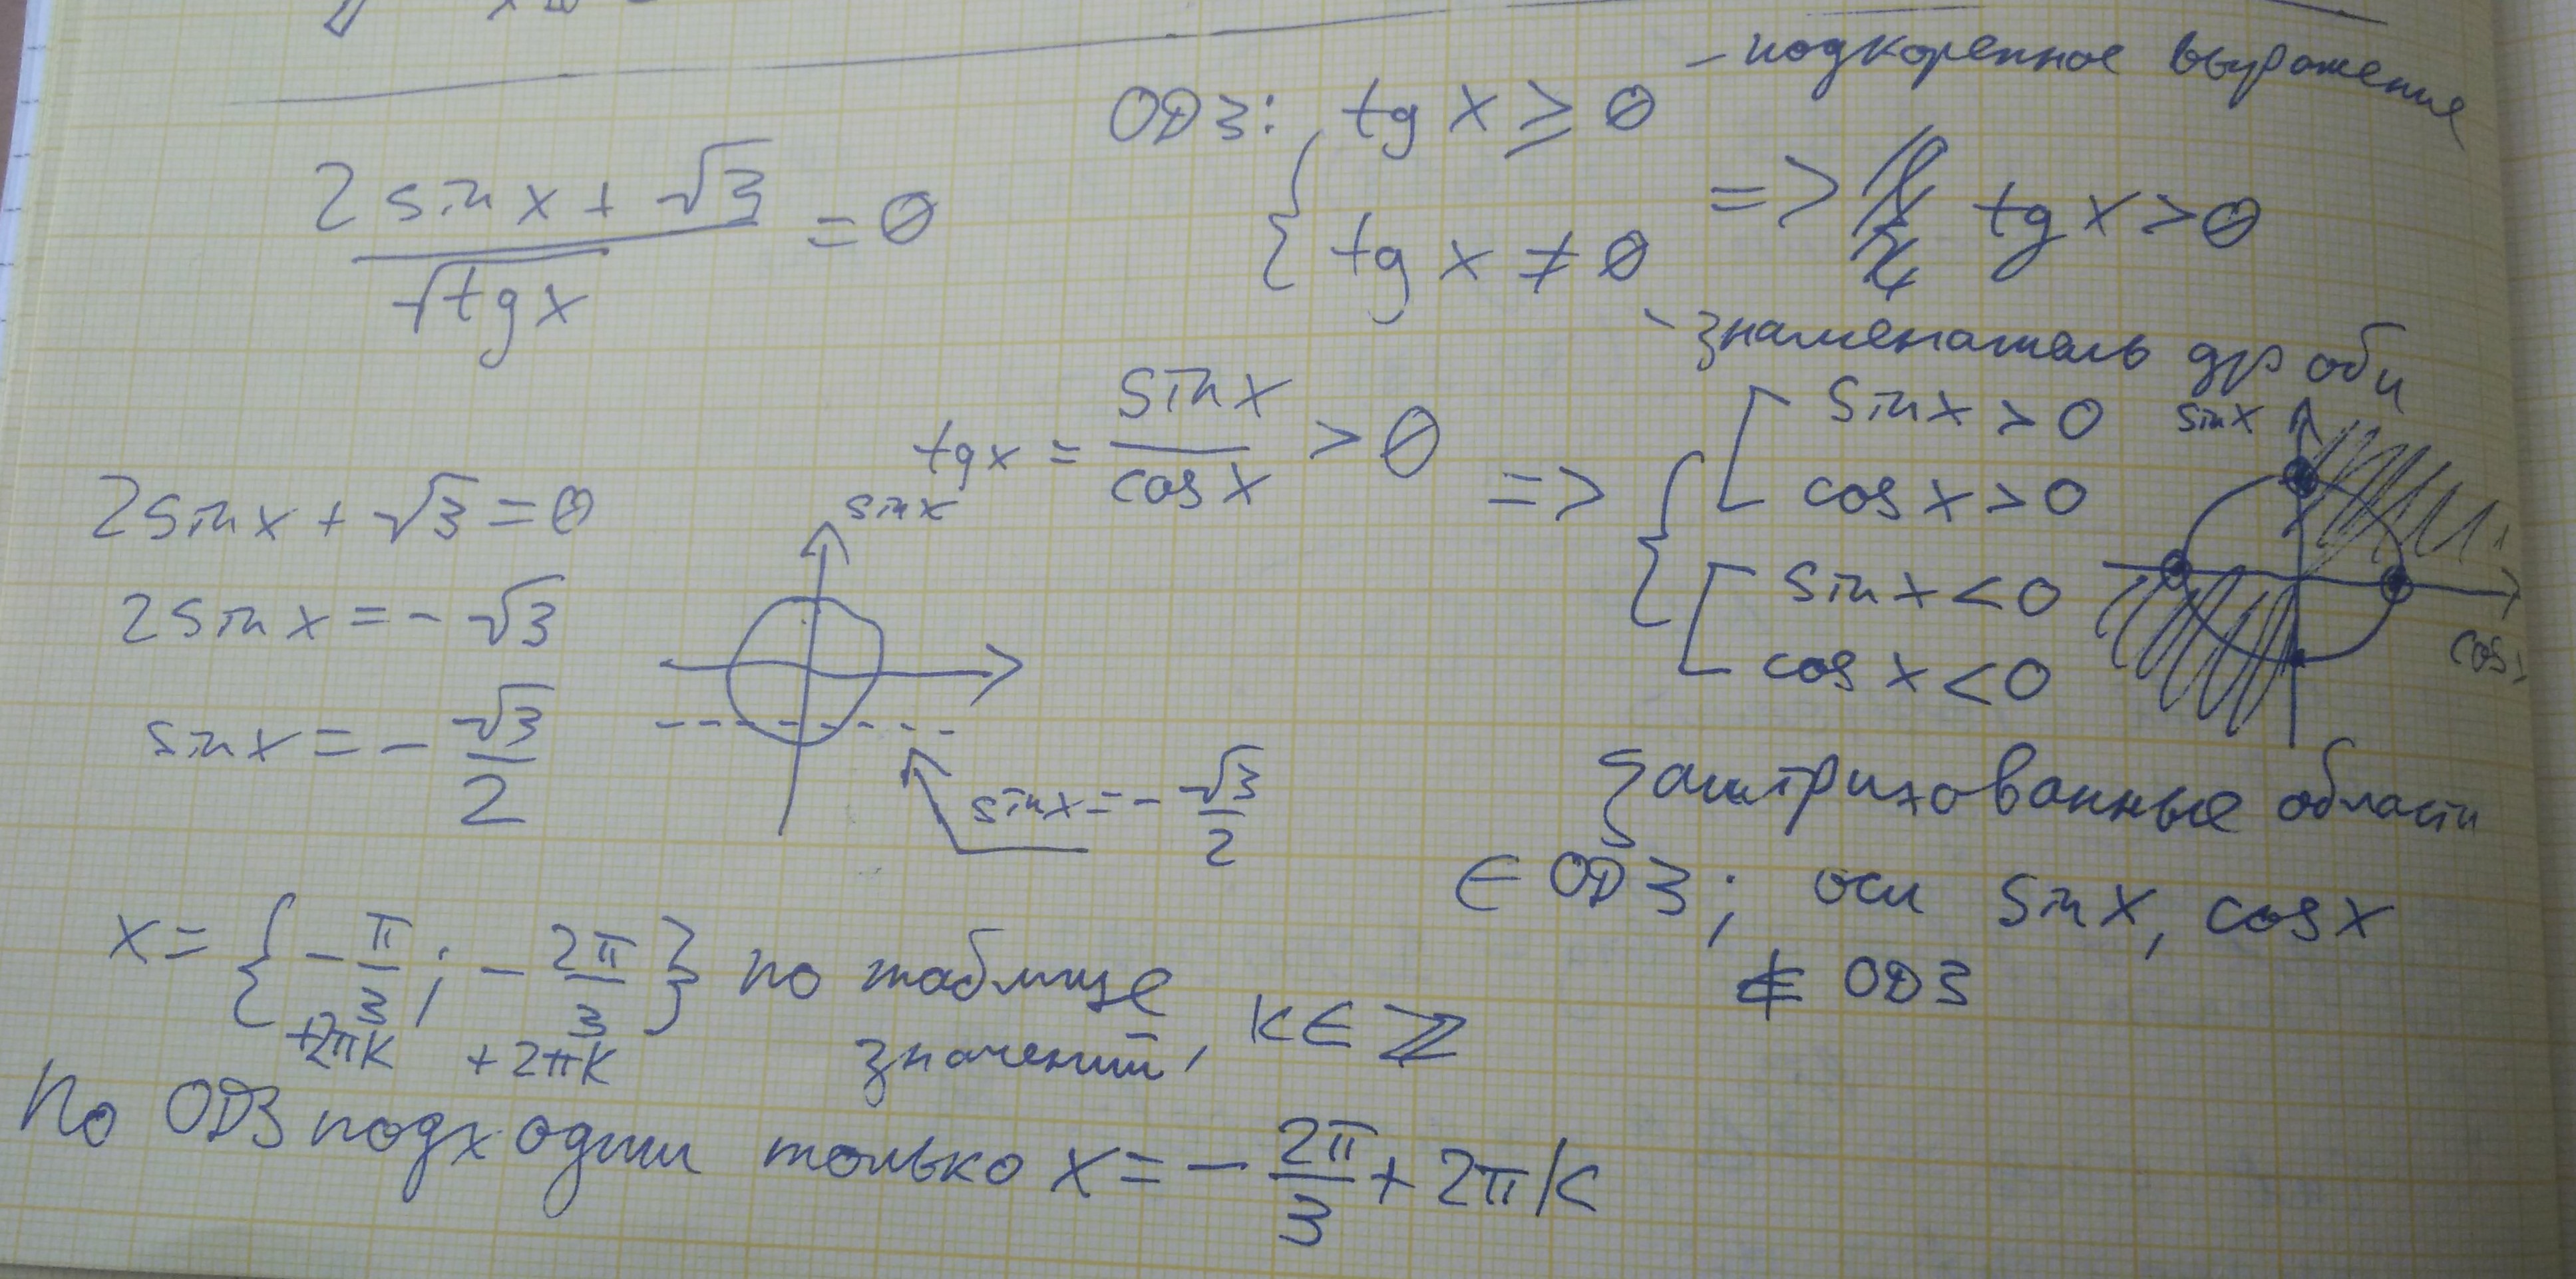 - подкоренное выражение
ОДЗ: { tg x ≥ 0
tg x ≠ 0 => tg x > 0
- знаменатель дроби
(2 sin x + √3) / √(tg x) = 0
tg x = sin x / cos x > 0 => { [ sin x > 0
cos x > 0
[ sin x < 0
cos x < 0
sin x
cos x
2 sin x + √3 = 0
2 sin x = - √3
sin x = - √3 / 2
sin x
sin x = - √3 / 2
Заштрихованные области
∈ ОДЗ ; оси sin x, cos x
∉ ОДЗ
x = { - π/3 + 2πk ; - 2π/3 + 2πk } по таблице
значений, k ∈ ℤ
По ОДЗ подходит только x = - 2π/3 + 2πk